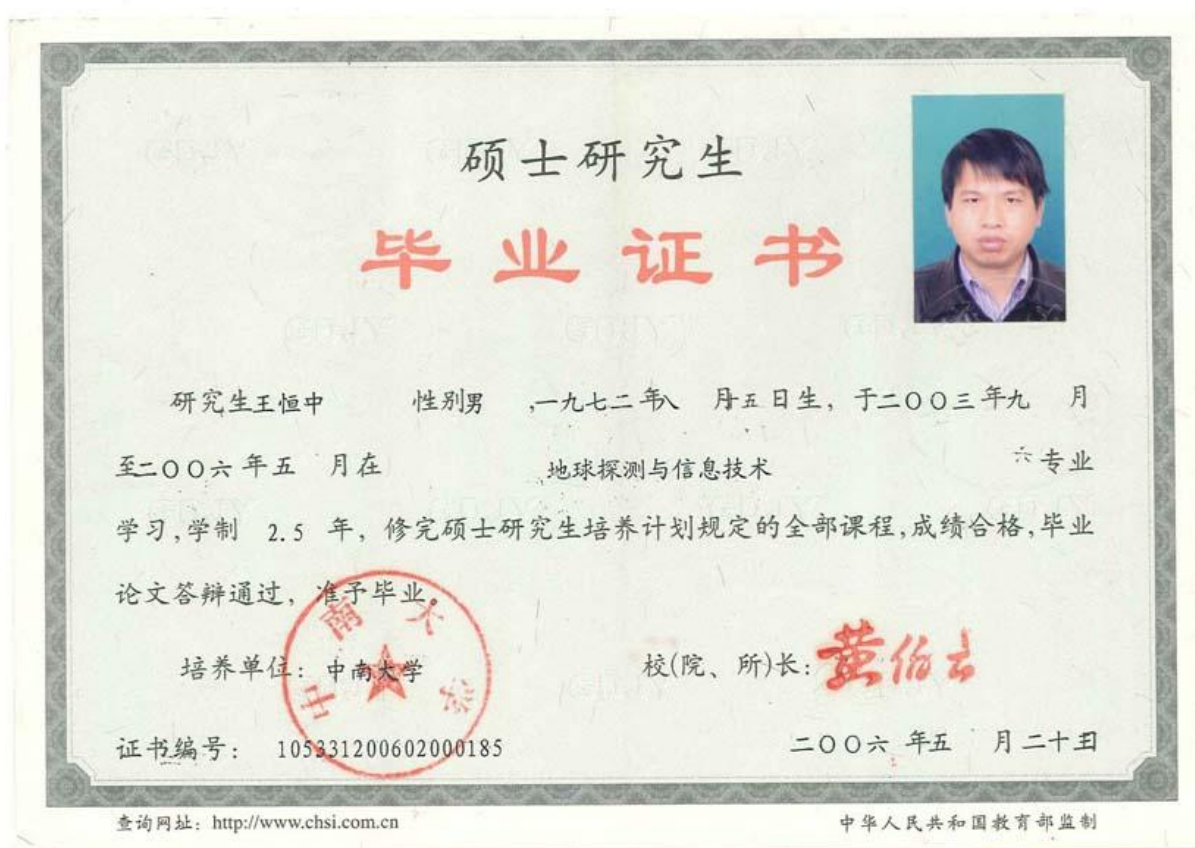 硕士研究生
毕业证书
研究生王恒中 性别男 ,一九七二年八 月五日生，于二〇〇三年九 月
至二〇〇六年五 月在 地球探测与信息技术 专业
学习,学制 2.5 年，修完硕士研究生培养计划规定的全部课程,成绩合格,毕业
论文答辩通过，准予毕业。
中南大学
培养单位：中南大学 校(院、所)长：黄伯云
证书编号：105331200602000185 二〇〇六年五 月二十日
查询网址：http://www.chsi.com.cn 中华人民共和国教育部监制